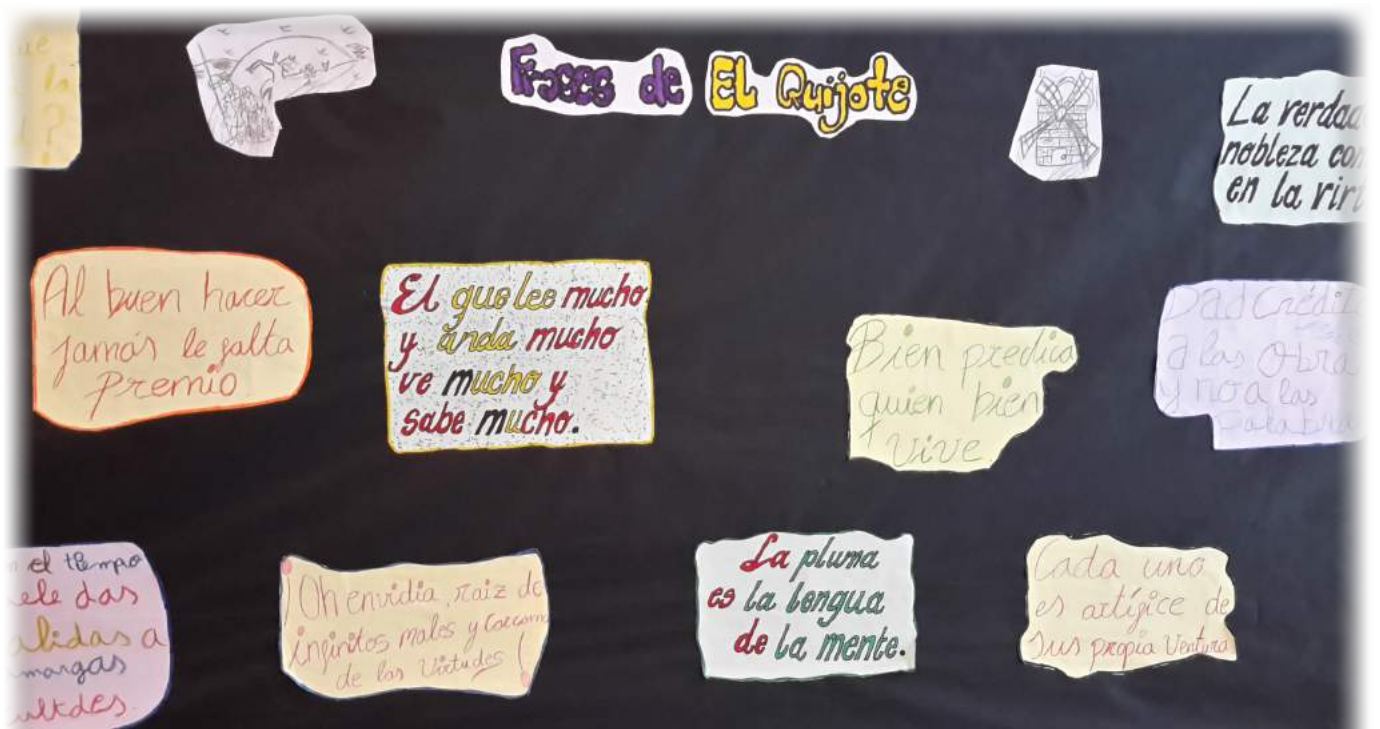 Frases de El Quijote
la
?
La verdad
nobleza con
en la virt
Al buen hacer
jamás le falta
premio
El que lee mucho
y anda mucho
ve mucho y
sabe mucho.
Bien predica
quien bien
vive
Dad crédit
a las obra
y no a las
palabra
el tiempo
ele das
alidas a
margas
ultdes.
¡Oh envidia, raiz de
infinitos males y carcoma
de las virtudes!
La pluma
es la lengua
de la mente.
Cada uno
es artífice de
sus propia ventura